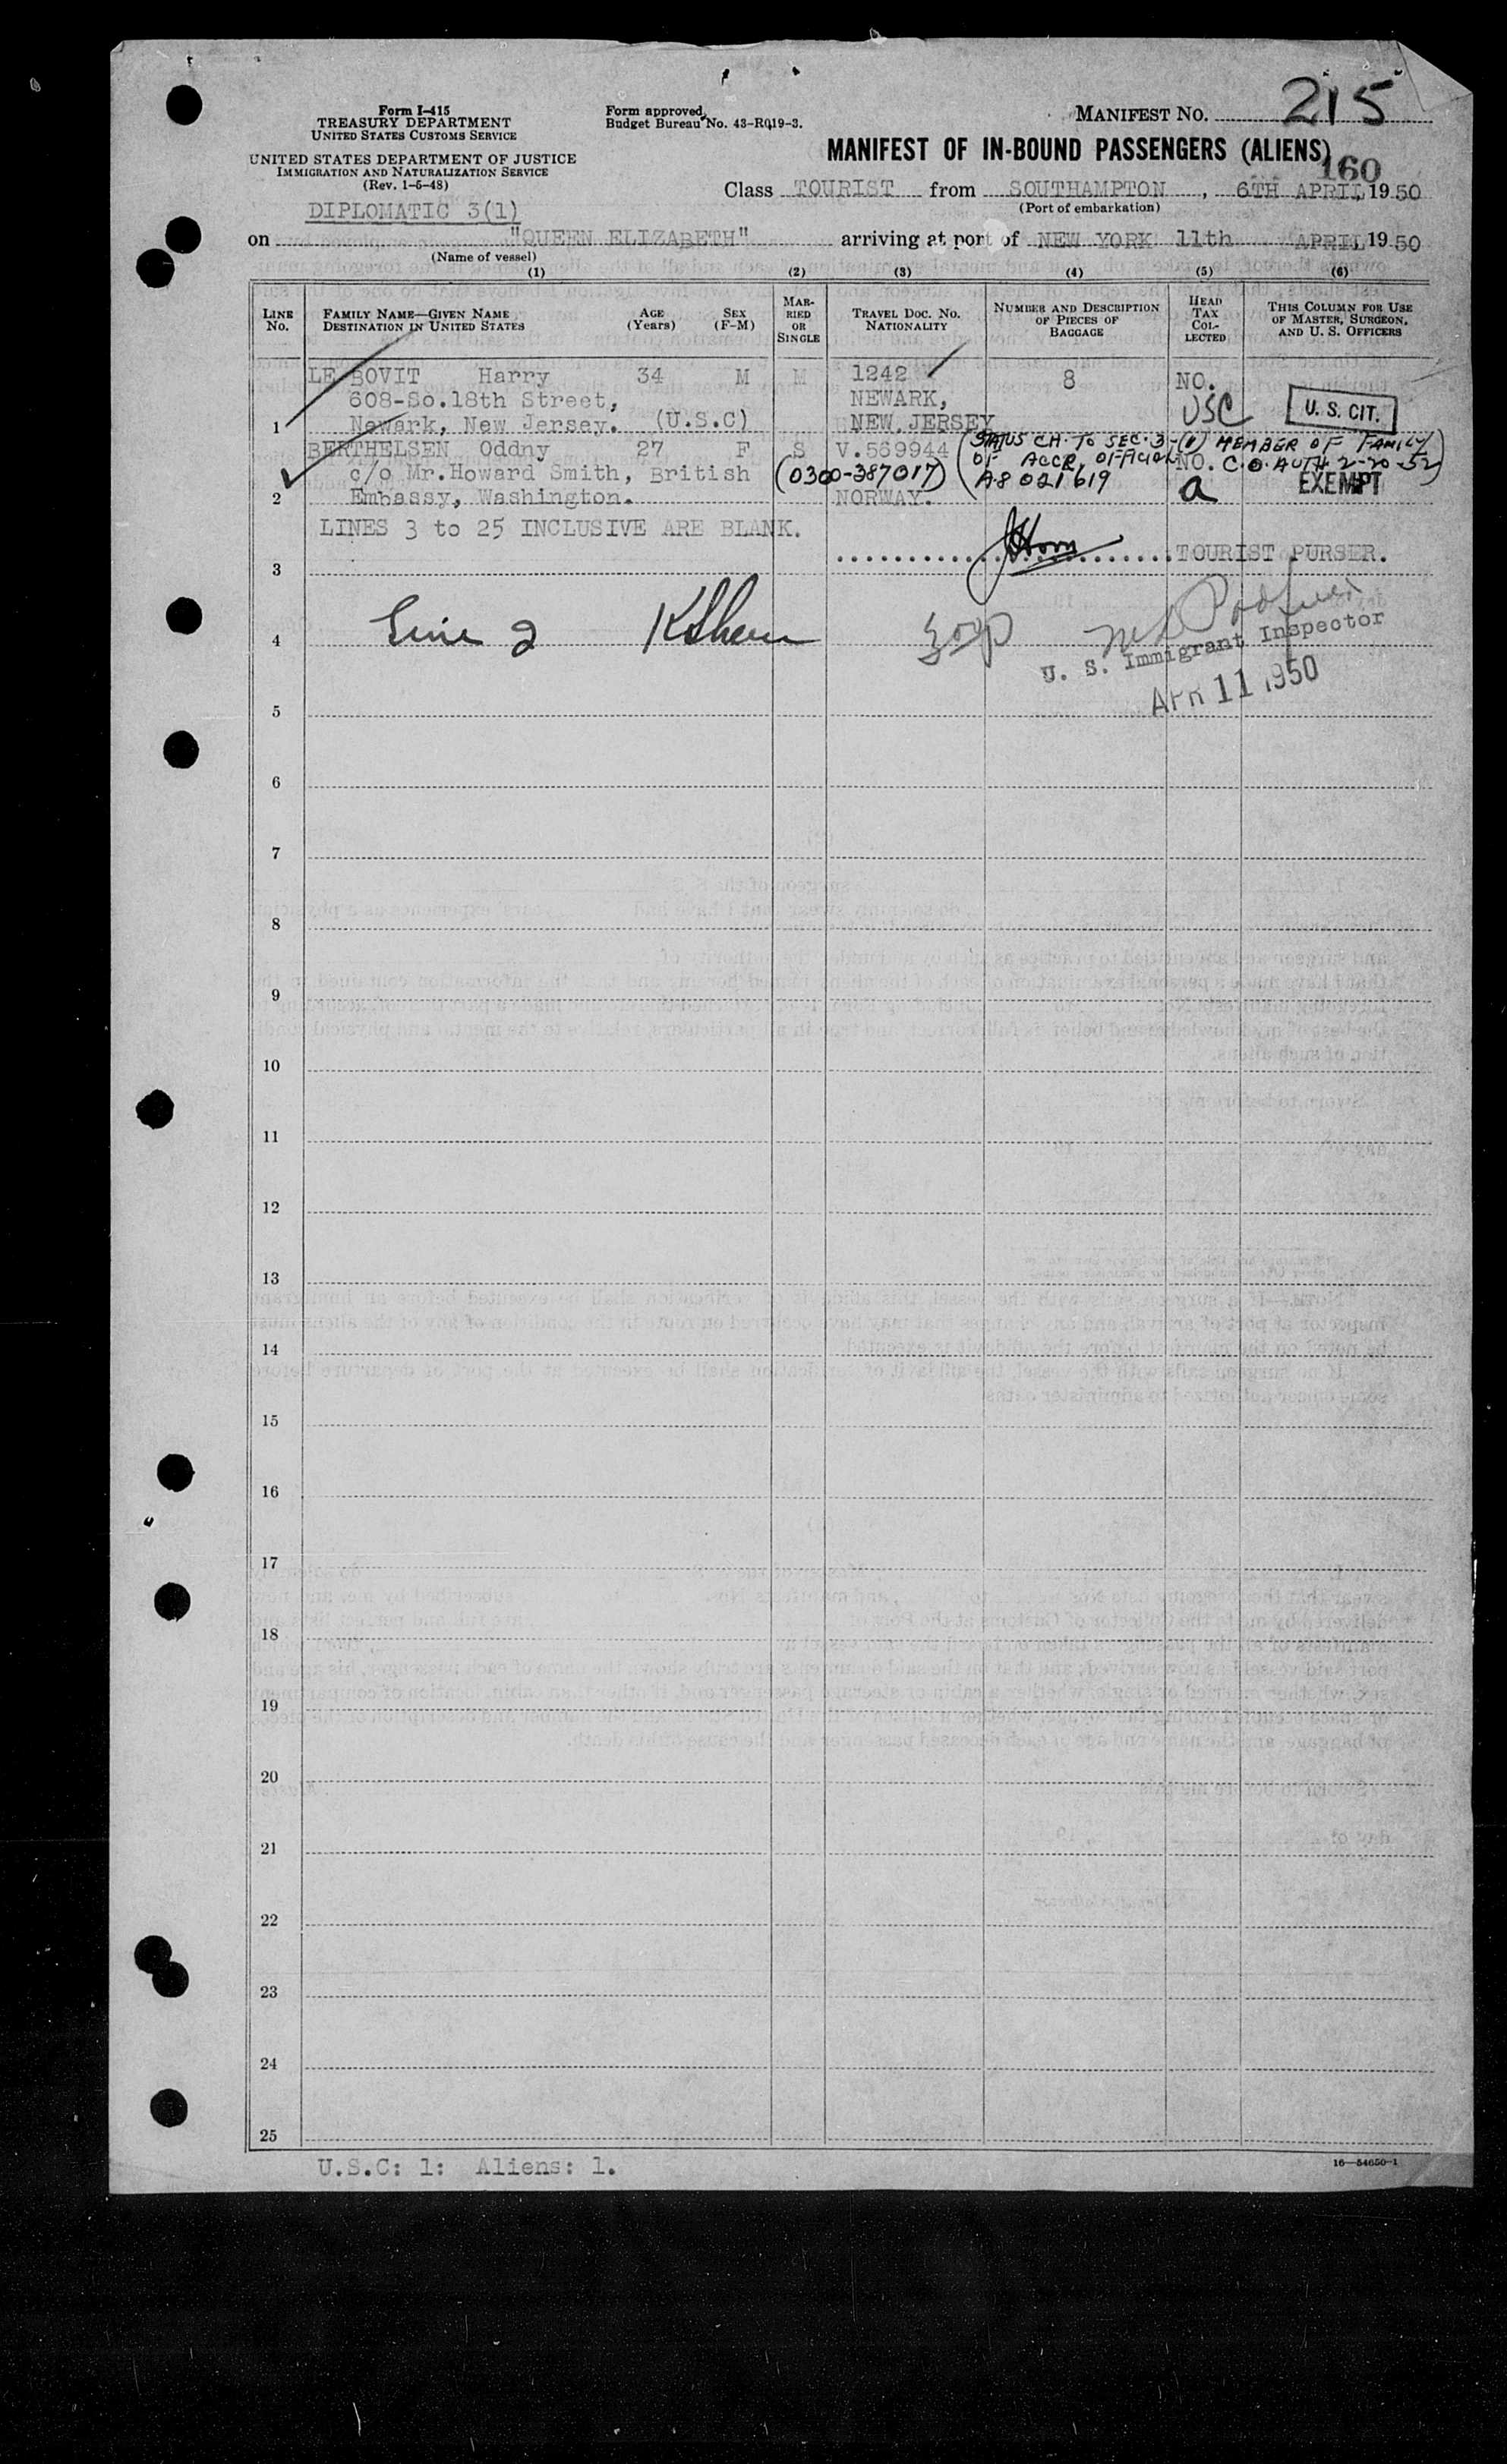 Form I-415
TREASURY DEPARTMENT
UNITED STATES CUSTOMS SERVICE
UNITED STATES DEPARTMENT OF JUSTICE
IMMIGRATION AND NATURALIZATION SERVICE
(Rev. 1-5-48)
Form approved.
Budget Bureau No. 43-R019-3.
MANIFEST NO. 215
MANIFEST OF IN-BOUND PASSENGERS (ALIENS)
160
Class TOURIST from SOUTHAMPTON, 6TH APRIL, 1950
(Port of embarkation)
DIPLOMATIC 3(1)
on "QUEEN ELIZABETH" arriving at port of NEW YORK 11th APRIL 1950
(Name of vessel)
(1) (2) (3) (4) (5) (6)
LINE No.
FAMILY NAME—GIVEN NAME
DESTINATION IN UNITED STATES
AGE (Years)
SEX (F-M)
MARRIED OR SINGLE
TRAVEL DOC. NO.
NATIONALITY
NUMBER AND DESCRIPTION OF PIECES OF BAGGAGE
HEAD TAX COLLECTED
THIS COLUMN FOR USE OF MASTER, SURGEON, AND U. S. OFFICERS
LE BOVIT Harry 34 M M 1242 8 NO.
608-So.18th Street, NEWARK, USC U. S. CIT.
1 Newark, New Jersey. (U.S.C) NEW JERSEY
BERTHELSEN Oddny 27 F S V.569944 (STATUS CH. TO SEC. 3-(1) MEMBER OF FAMILY
c/o Mr.Howard Smith, British (0300-387017) OF ACCR. OFFICIAL NO. C.O. AUTH. 2-20-52)
2 Embassy, Washington. NORWAY. A8 021 619 a EXEMPT
LINES 3 to 25 INCLUSIVE ARE BLANK.
3 TOURIST PURSER.
4
U. S. Immigrant Inspector
APR 11 1950
5
6
7
8
9
10
11
12
13
14
15
16
17
18
19
20
21
22
23
24
25
U.S.C: 1: Aliens: 1.
16—54650-1